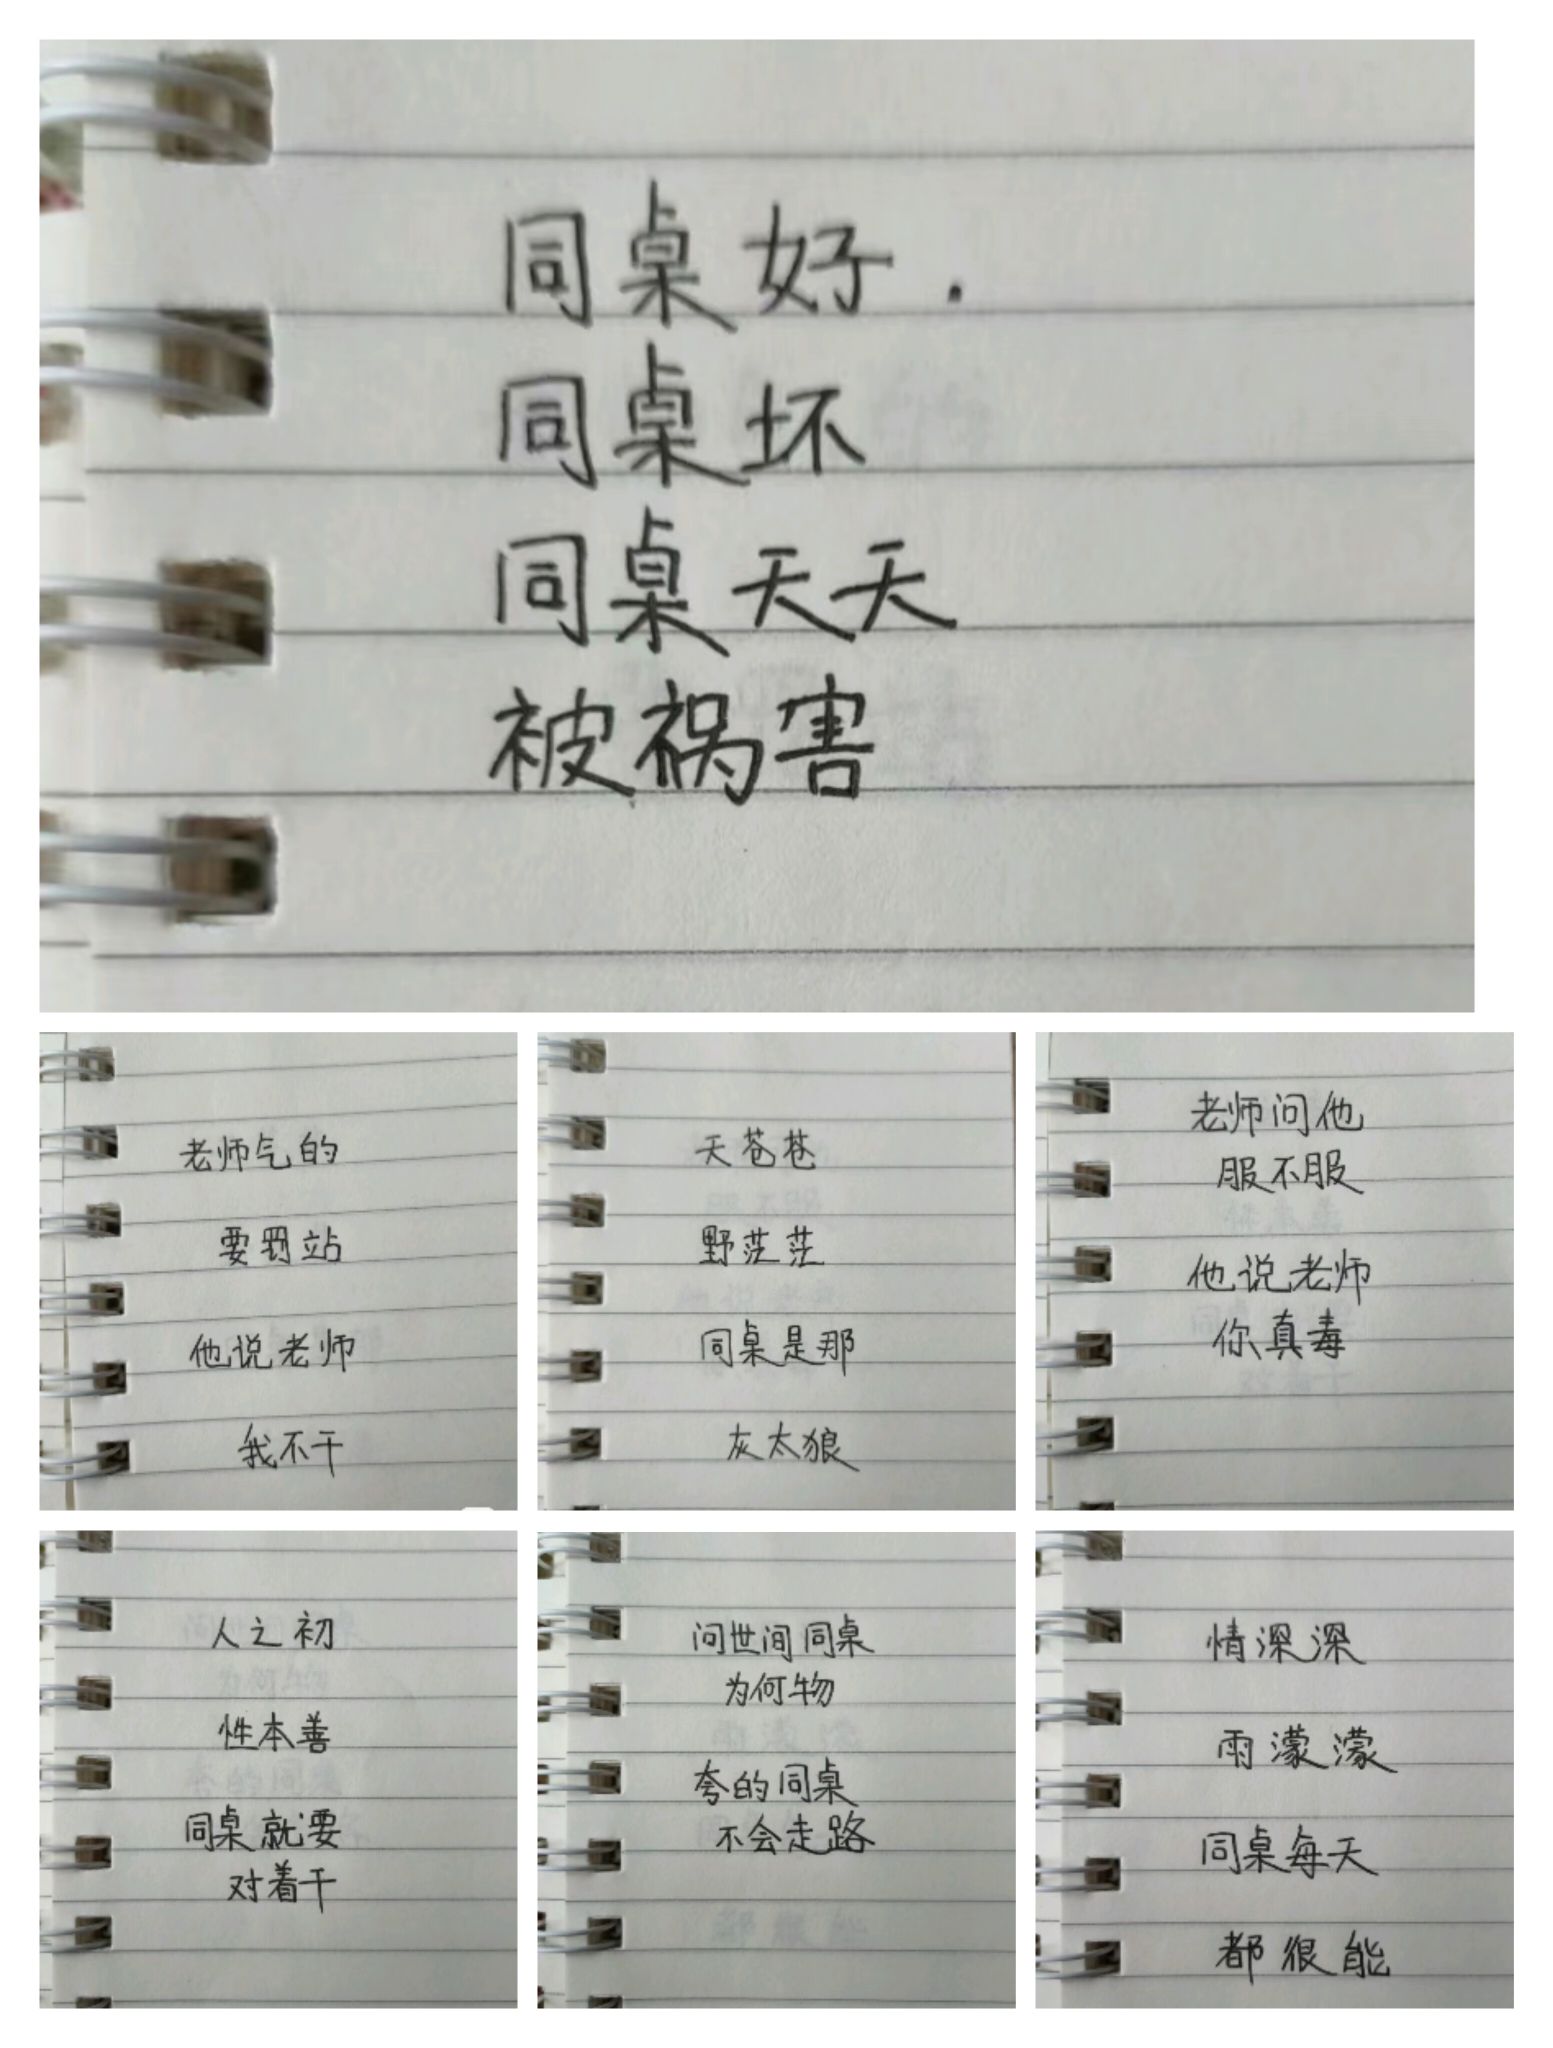 同桌好.
同桌坏
同桌天天
被祸害
老师气的
要罚站
他说老师
我不干
天苍苍
野茫茫
同桌是那
灰太狼
老师问他
服不服
他说老师
你真毒
人之初
性本善
同桌就要
对着干
问世间同桌
为何物
夸的同桌
不会走路
情深深
雨濛濛
同桌每天
都很能